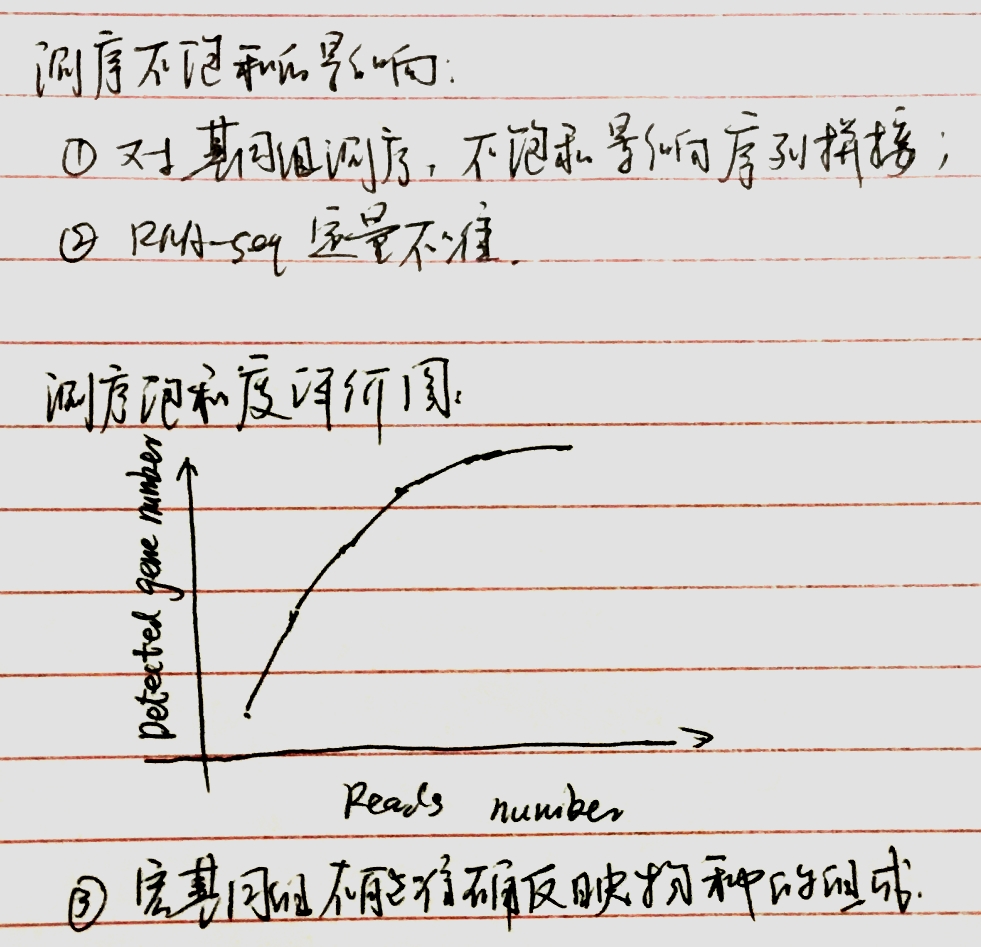 测序不饱和的影响:
① 对基因组测序,不饱和影响序列拼接;
② RNA-seq 定量不准.
测序饱和度评价图:
Detected gene number
Reads number
③ 宏基因组不能准确反映物种的组成.